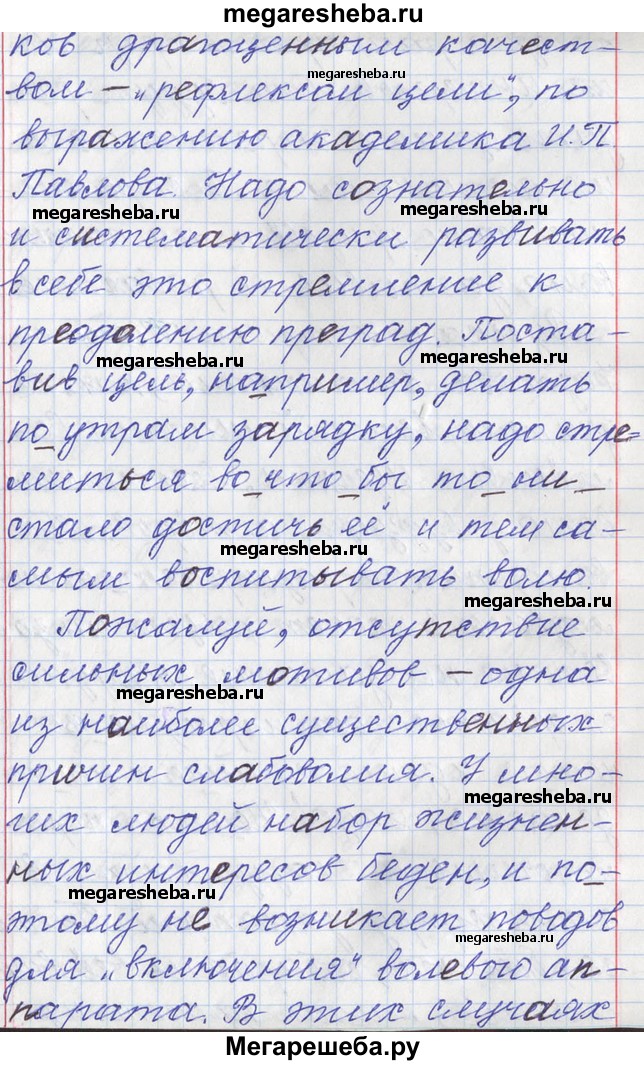 megaresheba.ru
ков драгоценным качест-
megaresheba.ru
вом – „рефлексом цели“, по
выражению академика И.П.
Павлова. Надо сознательно
megaresheba.ru
megaresheba.ru
и систематически развивать
в себе это стремление к
преодолению преград. Поста-
megaresheba.ru
megaresheba.ru
вив цель, например, делать
по утрам зарядку, надо стре=
миться во что бы то ни
стало достичь её и тем са-
megaresheba.ru
мым воспитывать волю.
megaresheba.ru
Пожалуй, отсутствие
сильных мотивов – одна
megaresheba.ru
из наиболее существенных
причин слабоволия. У мно-
megaresheba.ru
гих людей набор жизнен-
ных интересов беден, и по-
megaresheba.ru
этому не возникает поводов
megaresheba.ru
для „включения“ волевого ап-
парата. В этих случаях
Мегарешеба.ру